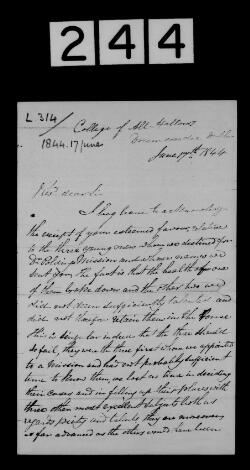 244
L 314/
1844.17/June
College of All Hallows
Drumcondra Dublin
June 17th 1844
Revd dear Sir
I beg leave to acknowledge
the receipt of your esteemed favour relative
to the three young men whom we destined for
Dr Mission and whose names we
sent down the fact is that the health of one
of them broke down and the other two
did not seem sufficiently talented and
did not therefore retain them in the House
this is singular indeed that the three should
so fail, they were the three first whom we appointed
to a mission and had not probably sufficient
time to know them, we lost no time in deciding
their cases and in filling up their places with
three other most excellent subjects both as
regards piety and talents they are moreover
as far advanced as the others would have been